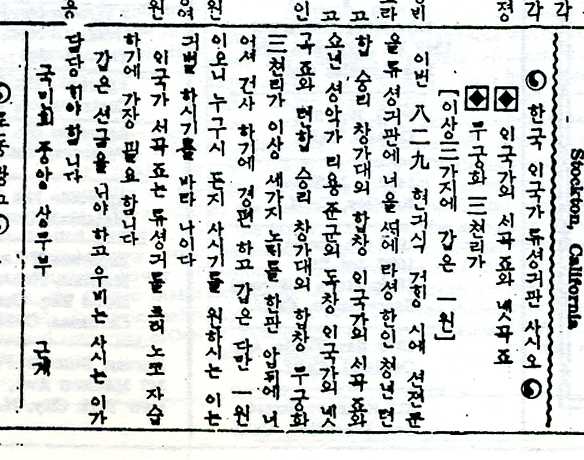 Stockton, California
한국 익국가 류셩긔판 사시오
익국가의 시곡죠와 녯곡죠
무궁화 三쳔리가
[이상三가지에 갑은 一원]
이번 八二九 현긔식 거힝 시에 션젼문
을 류셩긔판에 너을 에 라셩한인 쳥년 련
합 승리 창가대의 합창 익국가의 시곡죠와
셩악가 리용쥰군의 독창 익국가의 녯
곡죠와 련합 승리 창가대의 합창 무궁화
三쳔리가 이상 세가지 노릐를 한판 압뒤에 너
어셔 건사 하기에 경편 하고 갑은 다만 一원
이오니 누구시 든지 사시기를 원하시는 이는
긔별 하시기를 바라 나이다
익국가 시곡죠는 류셩긔를 트러 노코 자습
하기에 가장 필요 합니다
갑은 션금을 니야 하고 우비는 사시는 이가
담당 히야합니다
국민회 즁앙 상무부 근계